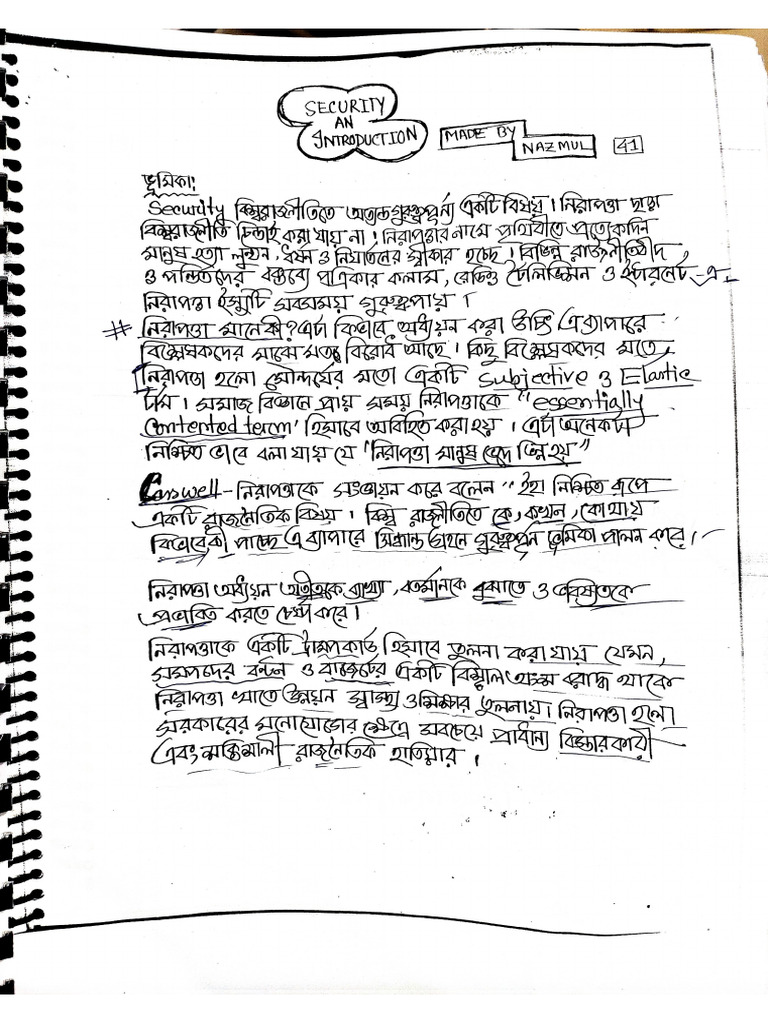 SECURITY
AN
INTRODUCTION
MADE BY
NAZMUL
41
ভূমিকা:
Security বিশ্বরাজনীতিতে অত্যন্ত গুরুত্বপূর্ণ একটি বিষয়। নিরাপত্তা ছাড়া
বিশ্বরাজনীতি চিন্তাই করা যায় না। নিরাপত্তার নামে পৃথিবীতে প্রত্যেকদিন
মানুষ হত্যা লুন্ঠন, ধর্ষন ও নির্যাতনের স্বীকার হচ্ছে। বিভিন্ন রাজনীতিবীদ
ও পন্ডিতদের বক্তব্যে পত্রিকার কলাম, রেডিও টেলিভিশন ও ইন্টারনেট এ
নিরাপত্তা ইস্যুটি সবসময় গুরুত্বপায়।
# নিরাপত্তা মানে কী? এটা কিভাবে অধ্যয়ন করা উচিৎ এব্যাপারে
বিশ্লেষকদের মাঝে মত বিরোধ আছে। কিছু বিশ্লেষকদের মতে
নিরাপত্তা হলো সৌন্দর্যের মতো একটি Subjective ও Elastic
টার্ম। সমাজ বিজ্ঞানে প্রায় সময় নিরাপত্তাকে "essentially
Contented term' হিসাবে অবিহিত করা হয়। এটা অনেকটা
নিশ্চিত ভাবে বলা যায় যে "নিরাপত্তা মানুষ ভেদে ভিন্ন হয়"
নিরাপত্তাকে সংজ্ঞায়ন করে বলেন " ইহা নিশ্চিত রূপে
একটি রাজনৈতিক বিষয়। বিশ্ব রাজনীতিতে কে, কখন, কোথায়
কিভাবে কী পাচ্ছে এ ব্যাপারে সিদ্ধান্ত গ্রহনে গুরুত্বপূর্ন ভূমিকা পালন করে।
নিরাপত্তা অধ্যয়ন অতীতকে ব্যাখ্যা, বর্তমানকে বুঝাতে ও ভবিষ্যতকে
প্রভাবিত করতে চেষ্টা করে।
নিরাপত্তাকে একটি ট্রাম্পকার্ড হিসাবে তুলনা করা যায় যেমন,
সম্পদের বন্টন ও বাজেটের একটি বিশাল অংশ বরাদ্ধ থাকে
নিরাপত্তা খাতে উন্নয়ন স্বাস্থ্য ও শিক্ষার তুলনায়। নিরাপত্তা হলো
সরকারের মনোযোগের ক্ষেত্রে সবচেয়ে প্রাধান্য বিস্তারকারী
এবং শক্তিশালী রাজনৈতিক হাতিয়ার।